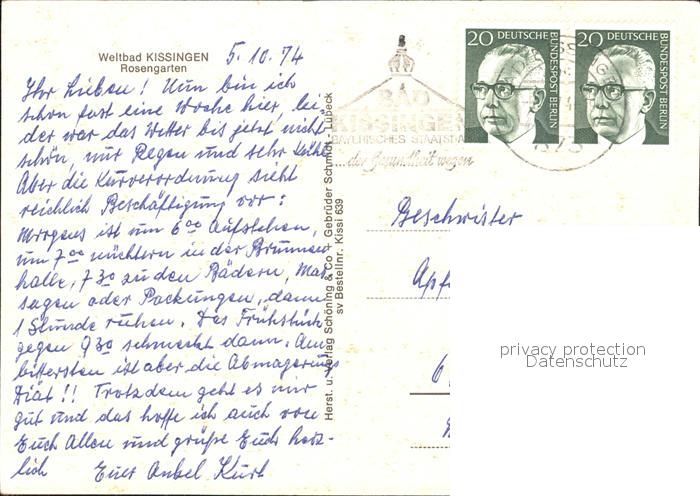 Weltbad KISSINGEN
Rosengarten
5.10.74
Ihr Lieben! Nun bin ich
schon fast eine Woche hier, lei-
der war das Wetter bis jetzt nicht
schön, nur Regen und sehr kühl.
Aber die Kurverordnung sieht
reichlich Beschäftigung vor:
Morgens ist um 6 00 Aufstehen,
um 7 00 nüchtern in der Brunnen
halle, 7 30 zu den Bädern, Mas
sagen oder Packungen, dann
1 Stunde ruhen. Das Frühstück
gegen 9 30 schmeckt dann. Am
bittersten ist aber die Abmagerungs
Diät!! Trotzdem geht es mir
gut und das hoffe ich auch von
Euch Allen und grüße Euch herz-
lich Euer Onkel Kurt
Herst. u. Verlag Schöning & Co + Gebrüder Schmidt, Lübeck
sv Bestellnr. Kissi 639
BAD
KISSINGEN
BAYERISCHES STAATSBAD
...der Gesundheit wegen
20 DEUTSCHE
BUNDESPOST BERLIN
20 DEUTSCHE
BUNDESPOST BERLIN
873
Geschwister
Apf
6
privacy protection
Datenschutz